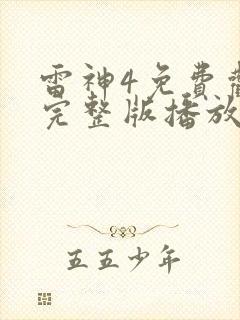 雷神4免費
完整版播放
五五少年